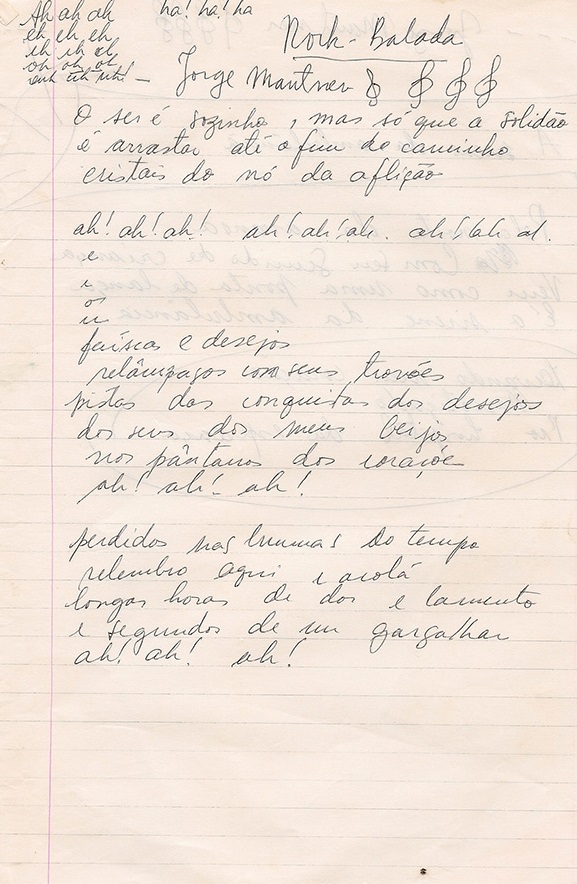 Ah ah ah
eh, eh, eh
ih ih ih
oh oh oh
uh uh uh! —
ha! ha! ha
Rock-Balada
Jorge Mautner
O ser é sozinho, mas só que a solidão
é arrastar até o fim do caminho
cristais do nó da aflição
ah! ah! ah! ah! ah! ah. ah! ah ah.
e
i
o
u
faíscas e desejos
relâmpagos com seus trovões
pistas das conquistas dos desejos
dos seus, dos meus beijos
nos pântanos dos coraçõe
ah! ah! ah!
perdidos nas brumas do tempo
relembro aqui e acolá
longas horas de dor e lamento
e segundos de um gargalhar
ah! ah! ah!